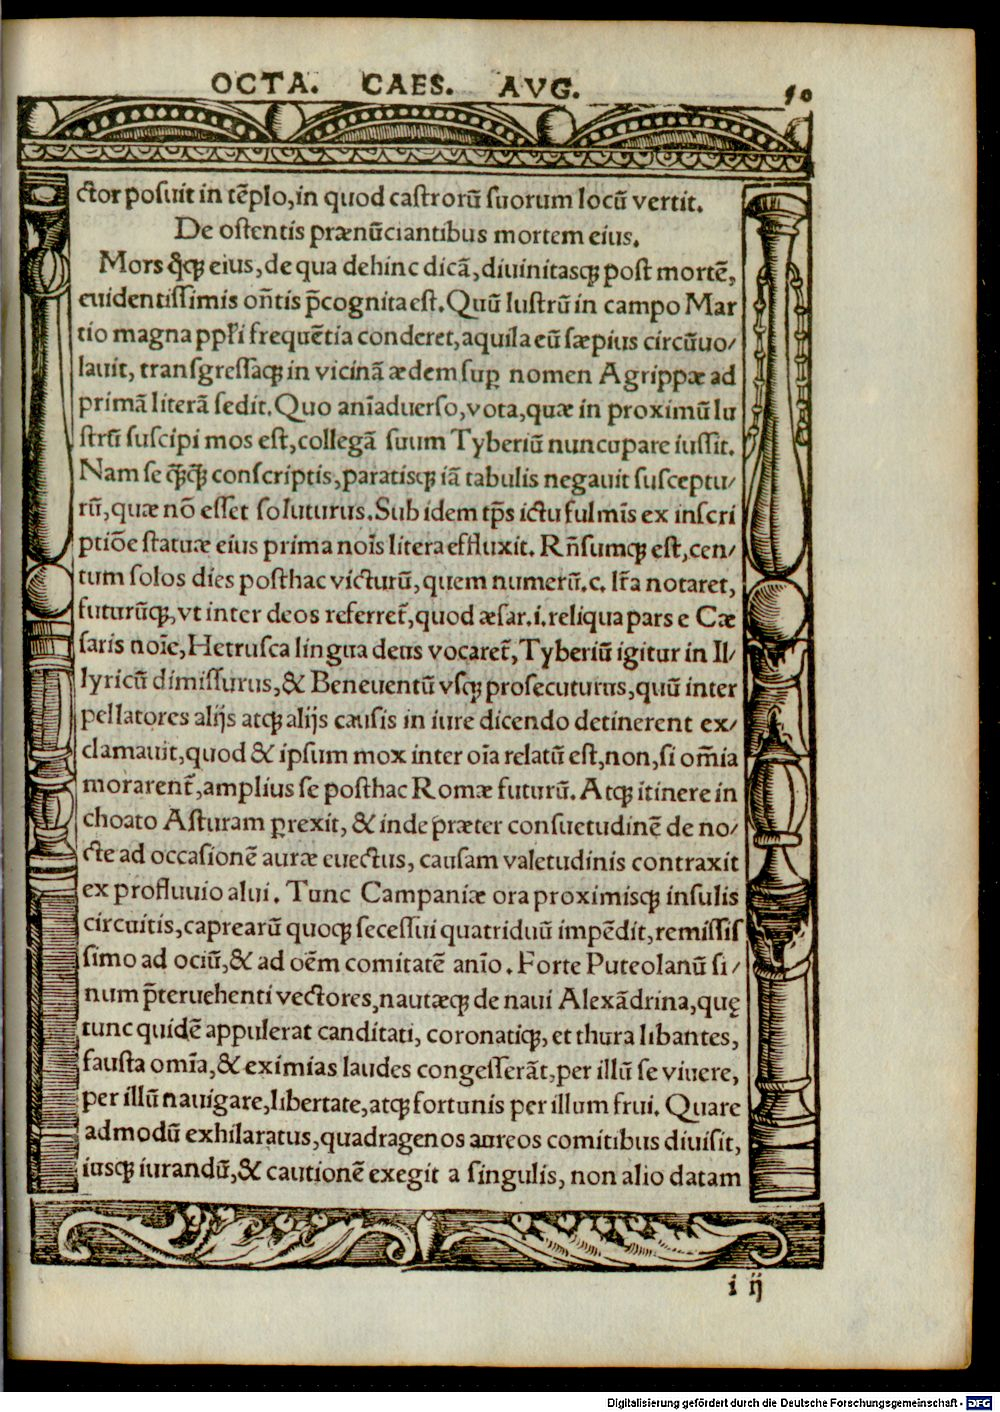 OCTA. CAES. AVG. 50
ctor posuit in tẽplo, in quod castrorũ suorum locũ vertit.
De ostentis prænũciantibus mortem eius.
Mors q̃q̃ꝫ eius, de qua dehinc dicã, diuinitasqꝫ post mortẽ,
euidentissimis oñtis p̃cognita est. Quũ lustrũ in campo Mar
tio magna ppl̃i frequẽtia conderet, aquila eũ sæpius circũuo/
lauit, transgressaqꝫ in vicinã ædem suꝑ nomen Agrippæ ad
primã literã sedit. Quo anĩaduerso, vota, quæ in proximũ lu
strũ suscipi mos est, collegã suum Tyberiũ nuncupare iussit.
Nam se q̃q̃ꝫ conscriptis, paratisqꝫ iã tabulis negauit susceptu/
rũ, quæ nõ esset soluturus. Sub idem tp̃s ictu fulmĩs ex inscri
ptiõe statuæ eius prima noĩs litera effluxit. Rñsumqꝫ est, cen/
tum solos dies posthac victurũ, quem numerũ .c. lr̃a notaret,
futurũqꝫ, vt inter deos referret̃, quod æsar .i. reliqua pars e Cæ
saris noĩe, Hetrusca lingua deus vocaret̃, Tyberiũ igitur in Il/
lyricũ dimissurus, & Beneuentũ vsqꝫ prosecuturus, quũ inter
pellatores alijs atqꝫ alijs causis in iure dicendo detinerent ex/
clamauit, quod & ipsum mox inter oĩa relatũ est, non, si om̃ia
morarent̃, amplius se posthac Romæ futurũ. Atqꝫ itinere in
choato Asturam ꝑrexit, & inde præter consuetudinẽ de no/
cte ad occasionẽ auræ euectus, causam valetudinis contraxit
ex profluuio alui. Tunc Campaniæ ora proximisqꝫ insulis
circuitis, caprearũ quoqꝫ secessui quatriduũ impẽdit, remissis
simo ad ociũ, & ad oẽm comitatẽ anĩo. Forte Puteolanũ si/
num p̃teruehenti vectores, nautæqꝫ de naui Alexãdrina, quę
tunc quidẽ appulerat canditati, coronatiqꝫ, et thura libantes,
fausta omĩa, & eximias laudes congesserãt, per illũ se viuere,
per illũ nauigare, libertate, atqꝫ fortunis per illum frui. Quare
admodũ exhilaratus, quadragenos aureos comitibus diuisit,
iusqꝫ iurandũ, & cautionẽ exegit a singulis, non alio datam
i ij
Digitalisierung gefördert durch die Deutsche Forschungsgemeinschaft - DFG